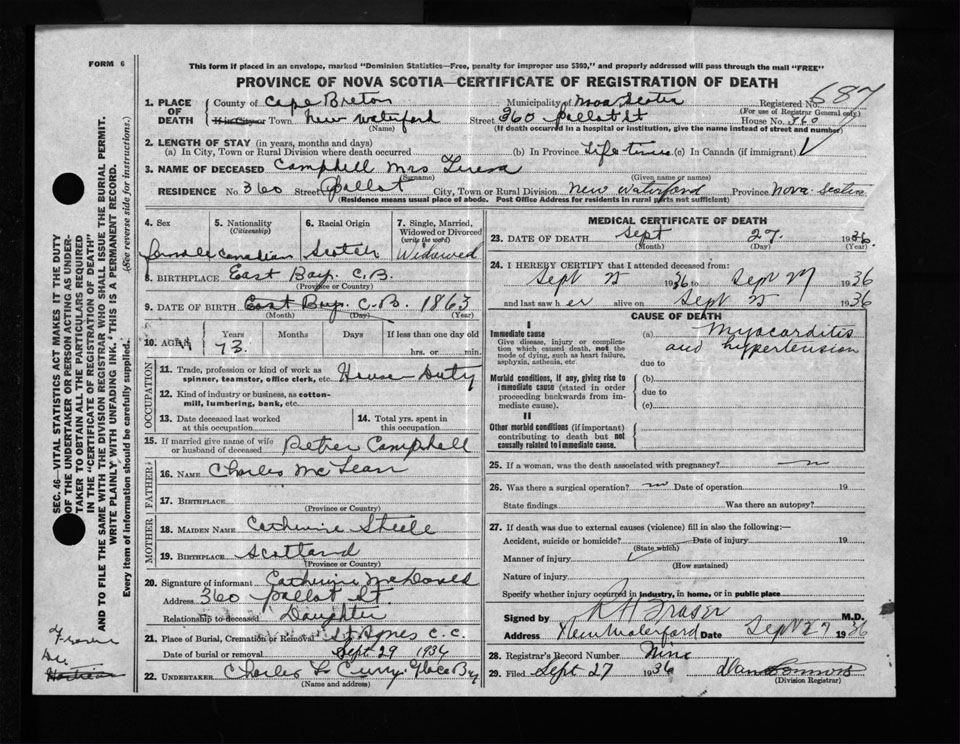 FORM 6
This form if placed in an envelope, marked "Dominion Statistics—Free, penalty for improper use $300," and properly addressed will pass through the mail "FREE"
PROVINCE OF NOVA SCOTIA—CERTIFICATE OF REGISTRATION OF DEATH
687
1. PLACE OF DEATH County of Cape Breton Municipality of Nova Scotia Registered No.
(For use of Registrar General only.)
If in City or Town New Waterford Street 360 House No. 360
(Name) (If death occurred in a hospital or institution, give the name instead of street and number)
2. LENGTH OF STAY (in years, months and days)
(a) In City, Town or Rural Division where death occurred (b) In Province Life time (c) In Canada (if immigrant)
3. NAME OF DECEASED Campbell Mrs Teresa
(Surname) (Given name or names)
RESIDENCE No 360 Street City, Town or Rural Division New Waterford Province Nova Scotia
(Residence means usual place of abode. Post Office Address for residents in rural parts not sufficient)
4. Sex 5. Nationality (Citizenship) 6. Racial Origin 7. Single, Married, Widowed or Divorced (write the word)
female Canadian Scotch Widowed
8. BIRTHPLACE East Bay. C.B.
(Province or Country)
9. DATE OF BIRTH East Bay. C.B. 1863
(Month) (Day) (Year)
10. AGE Years Months Days If less than one day old
73. hrs. or min.
OCCUPATION
11. Trade, profession or kind of work as spinner, teamster, office clerk, etc. House-Duty
12. Kind of industry or business, as cotton-mill, lumbering, bank, etc.
13. Date deceased last worked at this occupation 14. Total yrs. spent in this occupation
15. If married give name of wife or husband of deceased Peter Campbell
FATHER
16. NAME Charles McLean
17. BIRTHPLACE
(Province or Country)
MOTHER
18. MAIDEN NAME Catherine Steele
19. BIRTHPLACE Scotland
(Province or Country)
20. Signature of informant Catherine McDonald
Address 360
Relationship to deceased Daughter
21. Place of Burial, Cremation or Removal St Agnes C.C.
Date of burial or removal Sept 29 1936
22. UNDERTAKER Charles L Curry. Glace Bay
(Name and address)
MEDICAL CERTIFICATE OF DEATH
23. DATE OF DEATH Sept 27 1936.
(Month) (Day)
24. I HEREBY CERTIFY that I attended deceased from:
Sept 25 1936 to Sept 27 1936
and last saw her alive on Sept 25 1936
CAUSE OF DEATH
I
Immediate cause
Give disease, injury or complication which caused death, not the mode of dying, such as heart failure, asphyxia, asthenia, etc.
(a) Myocarditis and hypertension
due to
Morbid conditions, if any, giving rise to immediate cause (stated in order proceeding backwards from immediate cause).
(b)
due to
(c)
II
Other morbid conditions (if important) contributing to death but not causally related to immediate cause.
25. If a woman, was the death associated with pregnancy? no
26. Was there a surgical operation? no Date of operation 19
State findings Was there an autopsy?
27. If death was due to external causes (violence) fill in also the following:—
Accident, suicide or homicide? Date of injury 19
(State which)
Manner of injury
(How sustained)
Nature of injury
Specify whether injury occurred in industry, in home, or in public place
Signed by Fraser M.D.
Address New Waterford Date Sept 27 1936
28. Registrar's Record Number Nine
29. Filed Sept 27 1936
(Division Registrar)
SEC. 46—VITAL STATISTICS ACT MAKES IT THE DUTY
OF THE UNDERTAKER OR PERSON ACTING AS UNDERTAKER TO OBTAIN ALL THE PARTICULARS REQUIRED
IN THE "CERTIFICATE OF REGISTRATION OF DEATH"
AND TO FILE THE SAME WITH THE DIVISION REGISTRAR WHO SHALL ISSUE THE BURIAL PERMIT.
WRITE PLAINLY, WITH UNFADING INK. THIS IS A PERMANENT RECORD.
Every item of information should be carefully supplied. (See reverse side for instructions.)